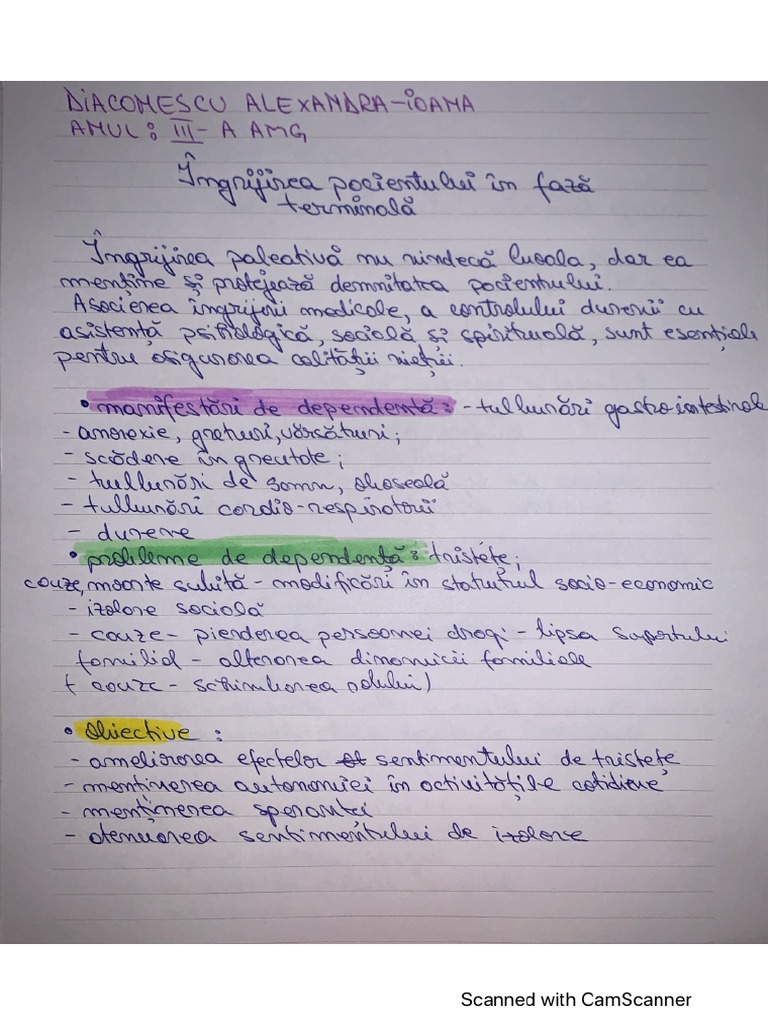 DIACOMESCU ALEXANDRA-IOANA
ANUL: III-A AMG
Îngrijirea pacientului în fază
terminală
Îngrijirea paleativă nu vindecă boala, dar ea
menține și protejează demnitatea pacientului.
Asocierea îngrijirii medicale, a controlului durerii cu
asistență psihologică, socială și spirituală, sunt esențiale
pentru asigurarea calității vieții.
• manifestări de dependență: - tulburări gastro intestinale
- anorexie, grețuri, vărsături;
- scădere în greutate;
- tulburări de somn, oboseală
- tulburări cardio-respiratorii
- durere
• probleme de dependență: tristețe;
cauze, moarte subită - modificări în statutul socio-economic
- izolare socială
- cauze - pierderea persoanei dragi - lipsa suportului
familial - alterarea dinamicii familiale
( cauze - schimbarea rolului)
• obiective :
- ameliorarea efectelor sentimentului de tristețe
- menținerea autonomiei în activitățile cotidiene
- menținerea speranței
- atenuarea sentimentului de izolare
Scanned with CamScanner